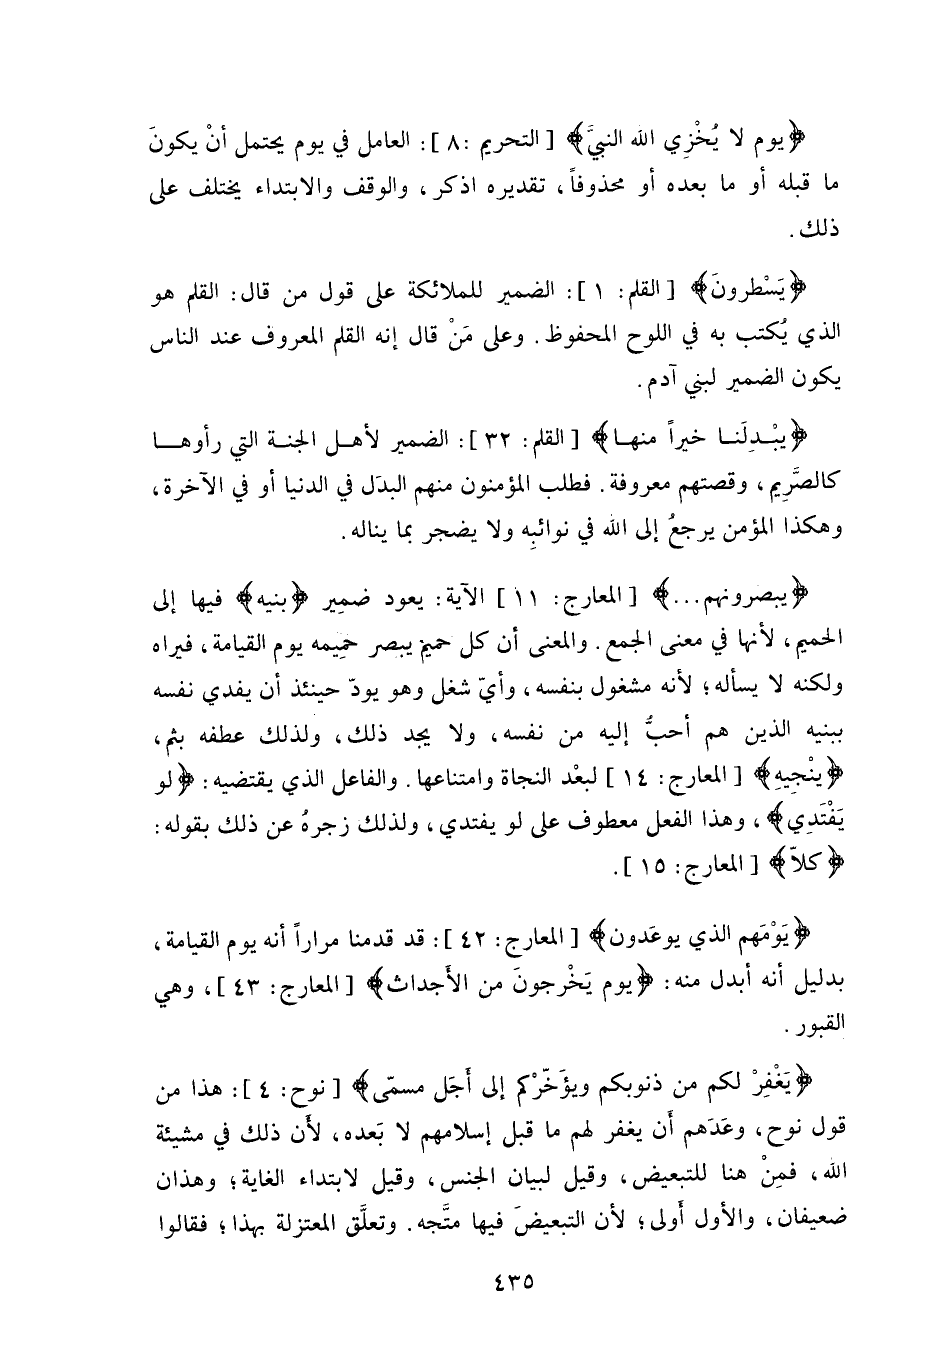 ﴿يوم لا يُخْزِي الله النبيَّ﴾ [ التحريم :٨ ]: العامل في يوم يحتمل أنْ يكونَ
ما قبله أو ما بعده أو محذوفاً، تقديره اذكر، والوقف والابتداء يختلف على
ذلك.
﴿يَسْطرونَ﴾ [ القلم: ١ ]: الضمير للملائكة على قول من قال: القلم هو
الذي يُكتب به في اللوح المحفوظ. وعلى مَنْ قال إنه القلم المعروف عند الناس
يكون الضمير لبني آدم.
﴿يبْـدِلَنـا خيراً منهـا﴾ [ القلم: ٣٢ ]: الضمير لأهـل الجنـة التي رأوهـا
كالصَّرِيم، وقصتهم معروفة. فطلب المؤمنون منهم البدَل في الدنيا أو في الآخرة،
وهكذا المؤمن يرجعُ إلى الله في نوائبِه ولا يضجر بما يناله.
﴿يبصرونهم...﴾ [ المعارج: ١١ ] الآية: يعود ضمير ﴿بنيه﴾ فيها إلى
الحميم، لأنها في معنى الجمع. والمعنى أن كل حميم يبصر حمِيمه يوم القيامة، فيراه
ولكنه لا يسأله؛ لأنه مشغول بنفسه، وأيّ شغل وهو يودّ حينئذ أن يفدي نفسه
ببنيه الذين هم أحبُّ إليه من نفسه، ولا يجد ذلك، ولذلك عطفه بثم،
﴿ينْجِيهِ﴾ [ المعارج: ١٤ ] لبعْد النجاة وامتناعها. والفاعل الذي يقتضيه: ﴿لو
يَفْتَدِي﴾، وهذا الفعل معطوف على لو يفتدي، ولذلك زجرهُ عن ذلك بقوله:
﴿كلاّ﴾ [ المعارج: ١٥ ].
﴿يَوْمَهم الذي يوعَدون﴾ [ المعارج: ٤٢ ]: قد قدمنا مراراً أنه يوم القيامة،
بدليل أنه أبدل منه: ﴿يوم يَخْرجونَ من الأَجداث﴾ [ المعارج: ٤٣ ]، وهي
القبور.
﴿يَغْفِرْ لكم من ذنوبكم ويؤَخّرْكم إلى أَجَل مسمّى﴾ [ نوح: ٤ ]: هذا من
قول نوح، وعَدَهم أَن يغفر لهم ما قبل إسلامهم لا بَعده، لأَن ذلك في مشيئة
الله، فمِنْ هنا للتبعيض، وقيل لبيان الجنس، وقيل لابتداء الغاية؛ وهذان
ضعيفان، والأول أَولى؛ لأن التبعيضَ فيها متَّجه. وتعلَّق المعتزلة بهذا؛ فقالوا
٤٣٥